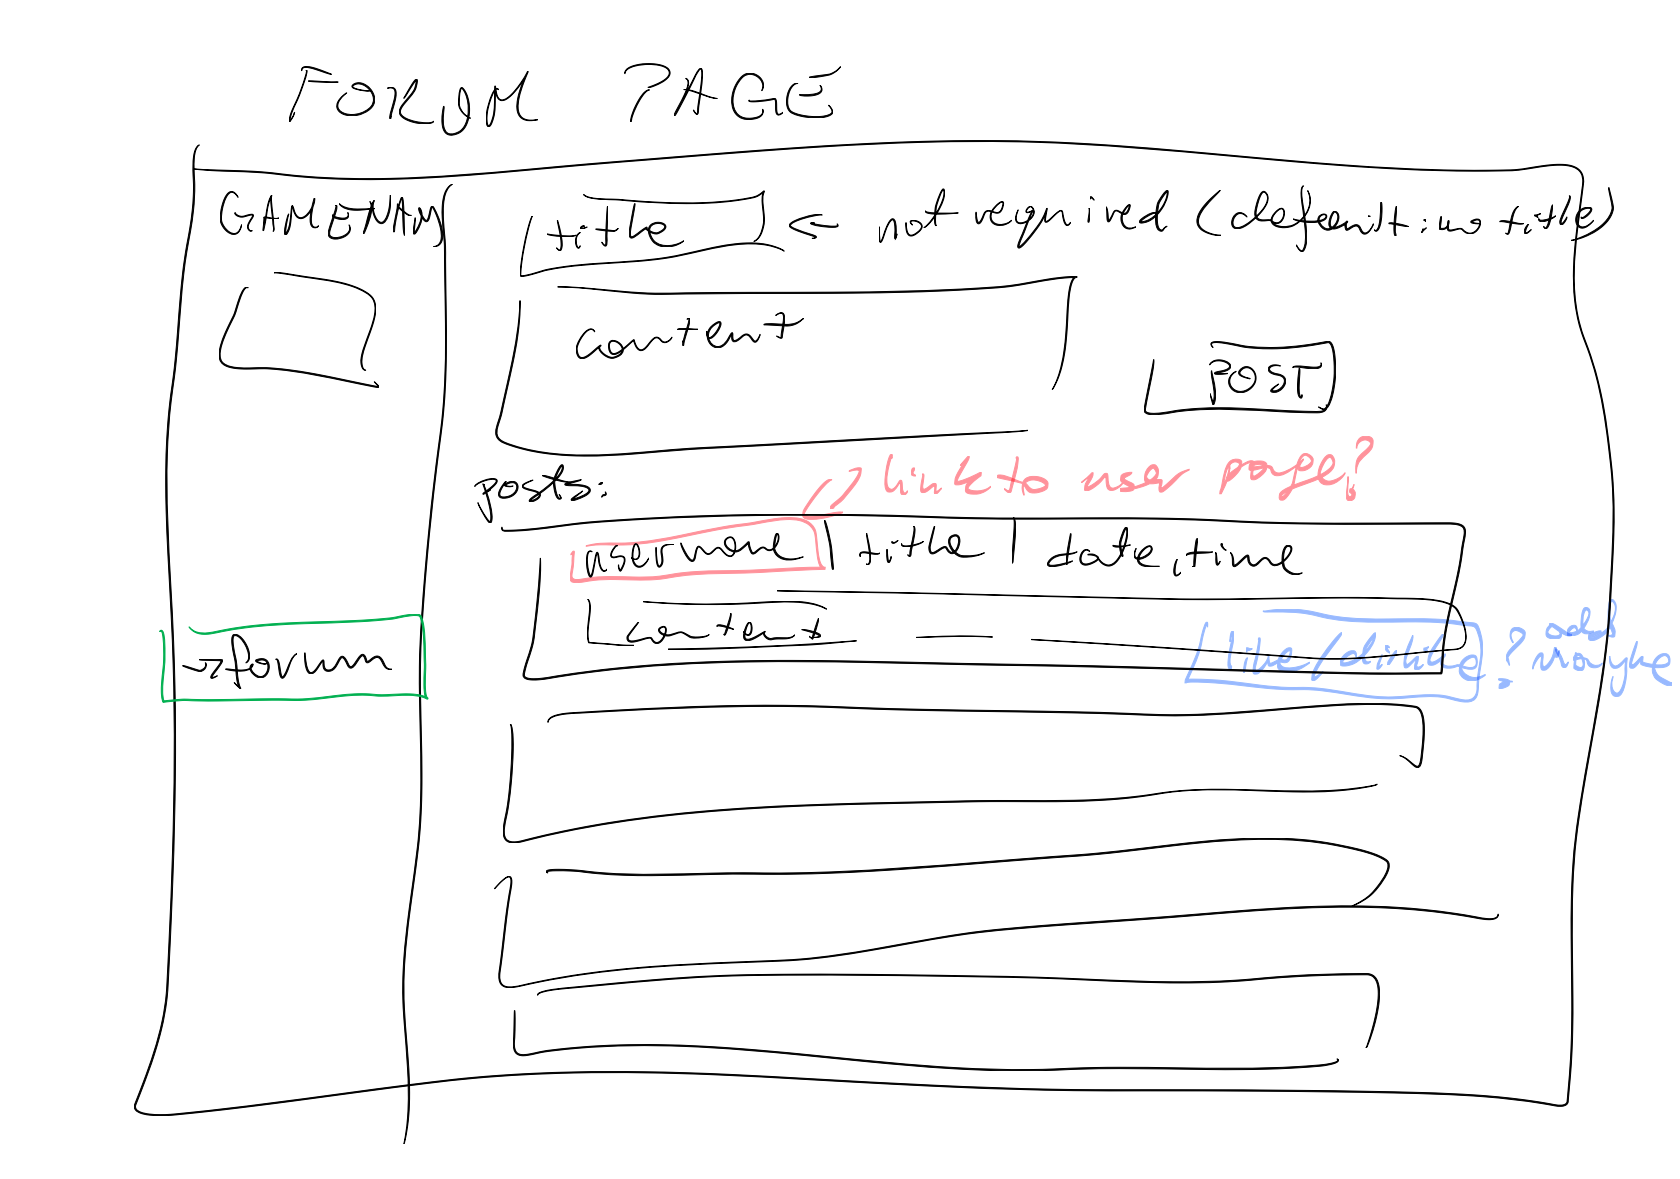 FORUM PAGE
GAMENAM
title ← not required (default: no title)
content
POST
posts:
link to user page?
username | title | date, time
content
like/dislike ? add
maybe
→ forum